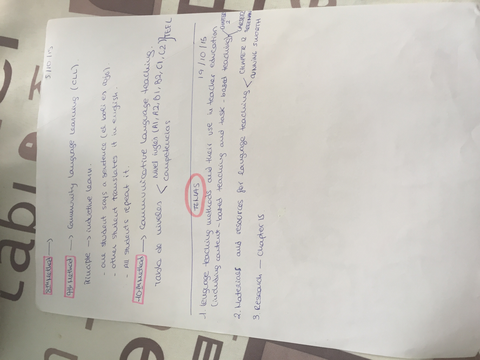 5/10/15
5th Method →
4th Method → Community Language Learning (CLL)
Principle → inductive learn.
- one student says a sentence (id both en esp)
- other student translates it in english
- all students repeat it.
10th Method → Communicative language teaching.
Tabla de niveles < level rules (A1, A2, B1, B2, C1, C2) } TEFL
competencias
19/10/15
TEMAS
1. Language teaching methods and their use in teacher education
(including content-based teaching and task-based teaching)
2. Materials and resources for language teaching < CHAPTER 2
3. Research — Chapter 15